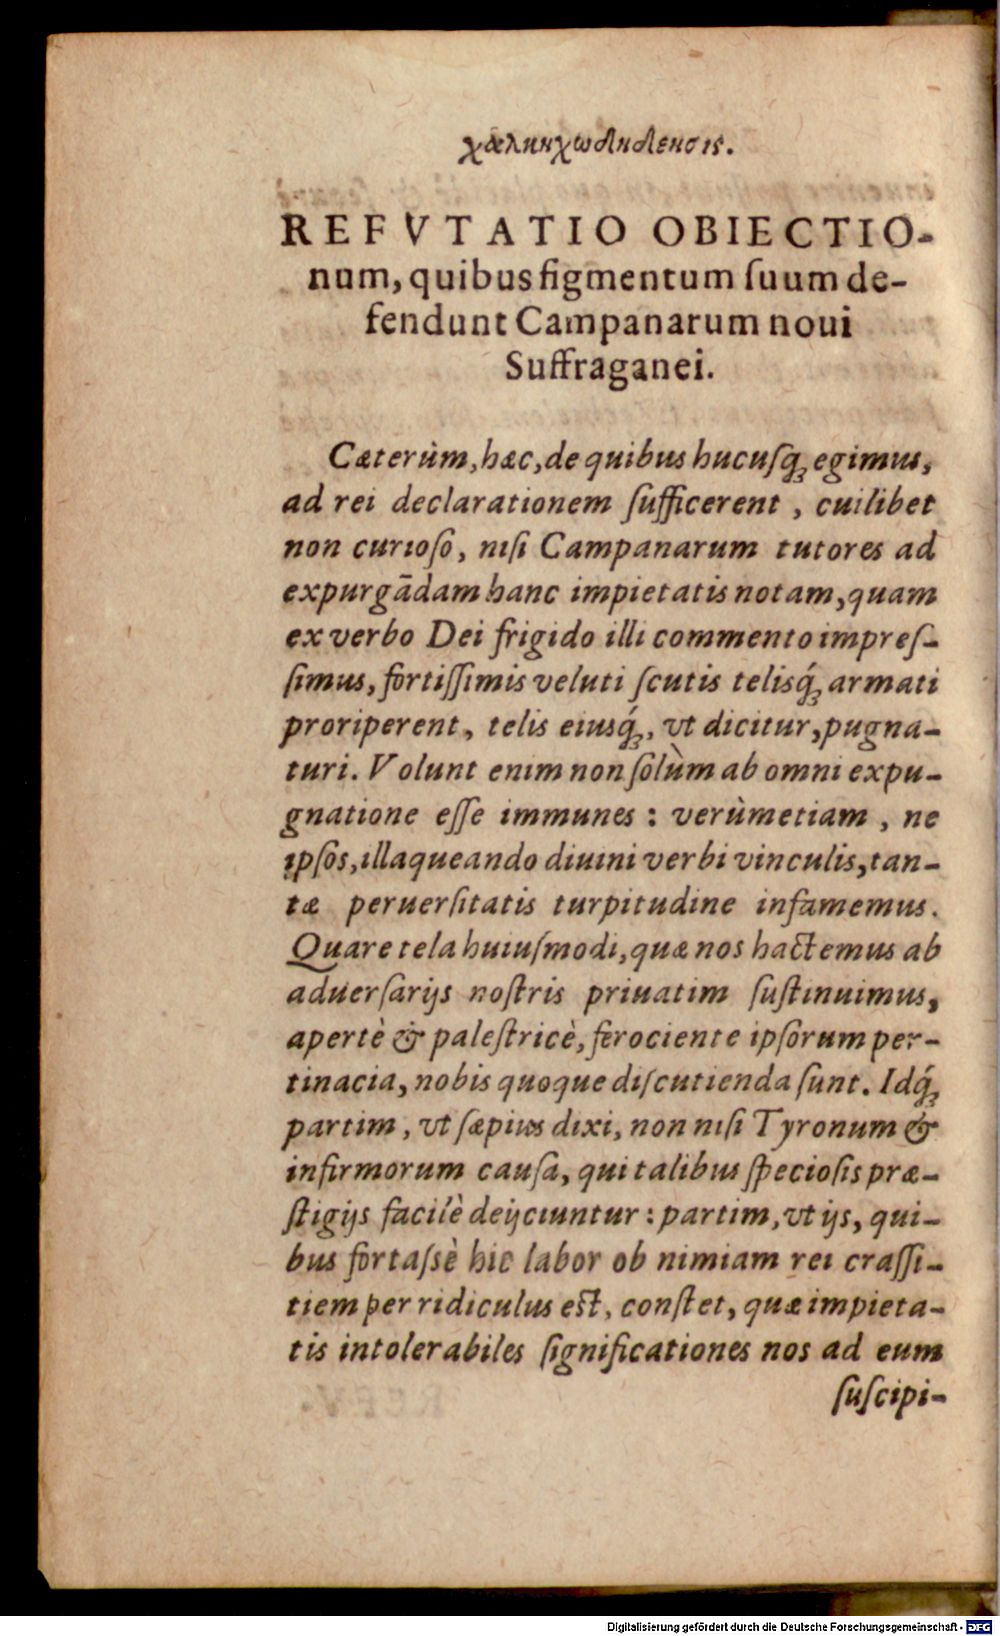 REFVTATIO OBIECTIO-
num, quibus figmentum ſuum de-
fendunt Campanarum noui
Suffraganei.
Cæterùm, hæc, de quibus hucuſq́ꝫ egimus,
ad rei declarationem ſufficerent, cuilibet
non curioſo, niſi Campanarum tutores ad
expurgādam hanc impietatis notam, quam
ex verbo Dei frigido illi commento impreſ-
ſimus, fortiſſimis veluti ſcutis telisq́ꝫ armati
proriperent, telis eiusq́ꝫ, vt dicitur, pugna-
turi. Volunt enim non ſolùm ab omni expu-
gnatione eſſe immunes: verùmetiam, ne
ipſos, illaqueando diuini verbi vinculis, tan-
tæ peruerſitatis turpitudine infamemus.
Quare tela huiuſmodi, quæ nos hactemus ab
aduerſarijs noſtris priuatim ſuſtinuimus,
apertè & paleſtricè, ferociente ipſorum per-
tinacia, nobis quoque diſcutienda ſunt. Idq́ꝫ
partim, vt ſæpius dixi, non niſi Tyronum &
infirmorum cauſa, qui talibus ſpecioſis præ-
ſtigijs facilè deijciuntur: partim, vt ijs, qui-
bus fortaſsè hic labor ob nimiam rei craſſi-
tiem per ridiculus eſt, conſtet, quæ impieta-
tis intolerabiles ſignificationes nos ad eum
ſuſcipi-
Digitalisierung gefördert durch die Deutsche Forschungsgemeinschaft - DFG